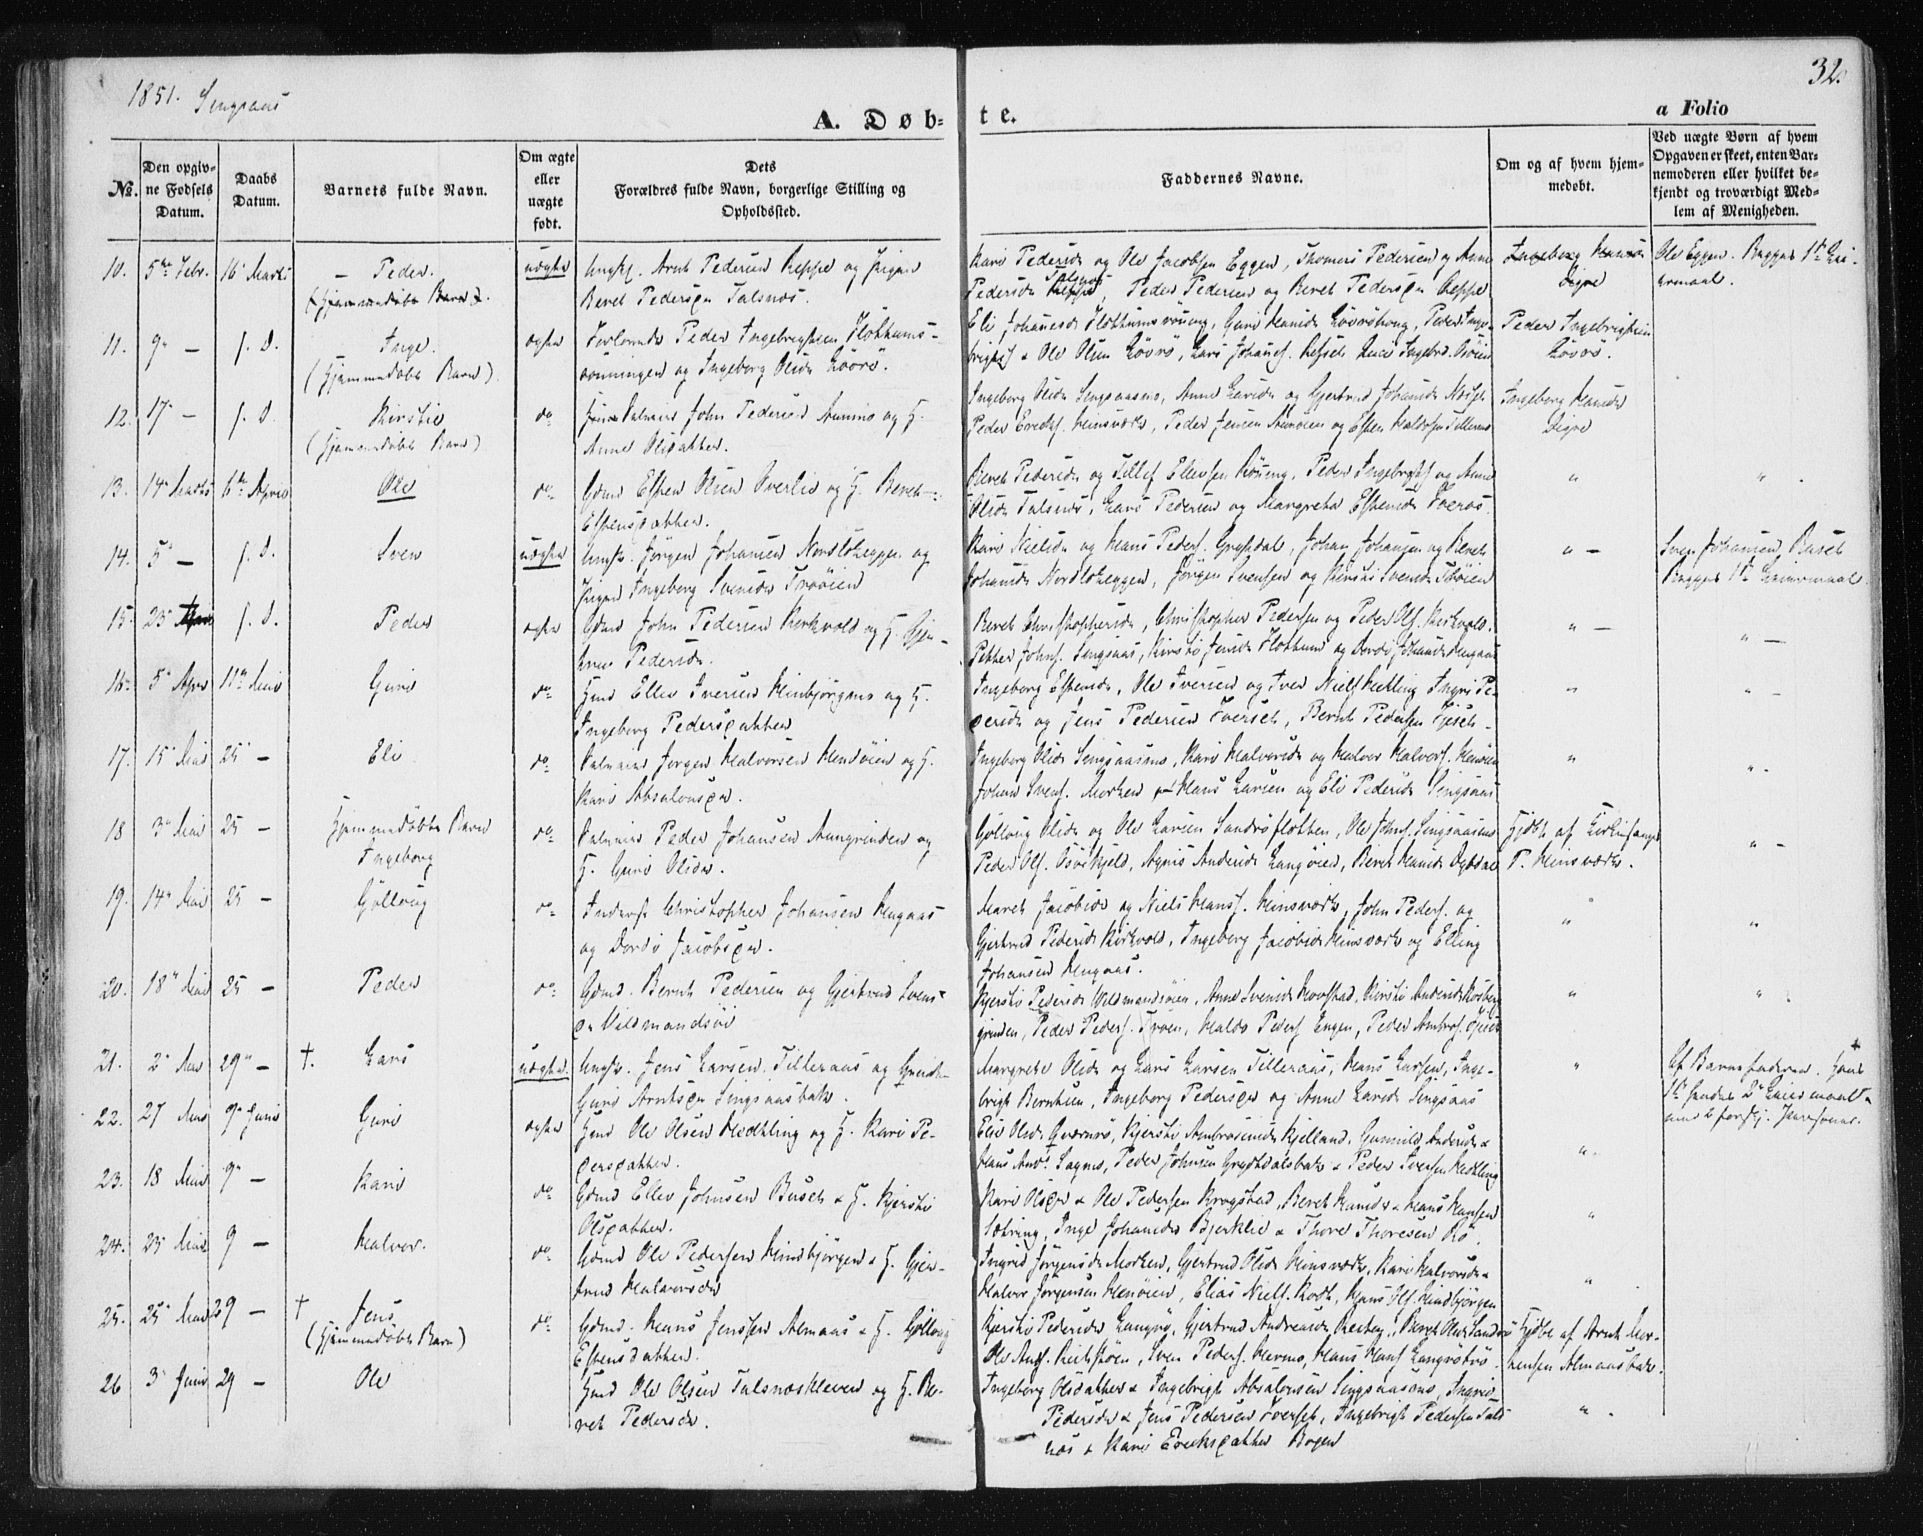 1851. Singsaas
32.
A. Døb-
te.
a Folio
No.
Den opgiv-
ne Fødsels
Datum.
Daabs
Datum.
Barnets fulde Navn.
Om ægte
eller
uægte
født.
Dets
Forældres fulde Navn, borgerlige Stilling og
Opholdssted.
Faddernes Navne.
Om og af hvem hjem-
medøbt.
Ved uægte Børn af hvem
Opgaven er skeet, enten Bar-
nemoderen eller hvilket be-
kjendt og troværdigt Med-
lem af Menigheden.
10. 5te Febr. 16 Marts – Peder. uægte Ungk. Arnt Pedersen Reppe og Pigen
(Hjemmedøbt Barn). Beret Pedersdr Talsnæs.
Kari Pedersdr og Ole Jacobsen Eggen, Thomas Pedersen og Anne
Talsnæs
Pedersdr Reppe, Peder Pedersen og Beret Pedersdr Reppe
Ingeborg Hansdr
Digre
Ole Eggen. Begges 1ste Lei-
ermaal.
11. 9 – s. D. Inge. ægte Forlovede Peder Ingebrigtsen Flothums-
(Hjemmedøbt Barn) rønningen og Ingeborg Olsdr Løvrø.
Eli Johansdr Flothumsrøning, Guri Hansdr Løvrøhaug, Peder Inge-
brigts. & Ole Olsen Løvrø, Lars Johans.
Peder Ingebrigtsen
Løvrø.
12. 17 – s. D. Kirstie do John Pedersen Aunmo og H.
(Hjemmedøbt Barn) Anne Olsdatter.
Ingeborg Olsdr Singsaasmo, Anne Larsdr og Gjertrud Johansdr
Peder Ericks. Hinsværk, Peder Jensen og Esten Haldorsen
Ingeborg Hansdr
Digre
13. 14 Marts 6te April Ole do Gdmd Esten Olsen Sverlie og H. Beret
Estensdatter.
Beret Pedersdr og Tellef Ellevsen Røneng, Peder Ingebrigts. og Anne
Olsdr Talsnæs, Lars Pedersen og Margrete Estensdr
" "
14. 5 – s. D. Sven uægte Ungk. Jørgen Johansen Nordløkeggen og
Pigen Ingeborg Svensdr Trøøien
Kari Nielsdr og Hans Peders. Grøtdal, Johan Johansen og Beret
Johansdr Nordløkeggen, Jørgen Svensen og Kirsti Svensdr Trøøien
" –
Sven Johansen Busch
Begges 1ste Leiermaal.
15. 23 s. D. Peder ægte Gdmd John Pedersen Kirkvold og H. Gjer-
trud Pedersdr.
Beret Christophersdr, Christopher Pedersen og Peder Ols. Kirkvold.
Petter Johns. Singsaas, Kirsti Jensdr Flothum og Dordi Johansdr Haugaas
" – " –
16. 5 April 11te Mai Guri do Hmd Ellev Iversen Hinbjørgmo og H.
Ingeborg Pedersdatter
Ingeborg Estensdr, Ole Iversen og Iver Niels. Kletling Ingri Pe-
dersdr og Jens Pedersen Forset, Bernt Pedersen
" " –
17. 15 Mai 25 – Eli do Jørgen Halvorsen Henøien og H.
Kari Absalonsdr.
Ingeborg Olsdr Singsaasmo, Kari Halvorsdr og Halvor Halvors. Henøien
Johan Svens. Morken Hans Larsen og Eli Pedersdr Singsaas
" "
18 3 Mai 25 – Hjemmedøbt Barn do Peder Johansen Aungrinden og
Ingeborg H. Guri Olsdr.
Gølloug Olsdr og Ole Larsen Sandrøflotten, Ole Johns. Singsaasmo
Peder Ols. Agnis Andersdr Langøien, Beret Hansdr
Hjdbt af
P. Hinsværk.
" –
19. 14 Mai 25 – Gølloug do Inderst Christopher Johansen Haugaas
og Dordi Jacobsdr.
Maret Jacobsdr og Niels Hans. Hinsværk, John Peders. og
Gjertrud Pedersdr Kirkvold, Ingeborg Jacobsdr Hinsværk og Elling
Johansen Haugaas.
" "
20. 18 Mai 25 – Peder do Gdmd. Bernt Pedersen og Gjertrud Svens-
dr Vildmandsøi
Kjersti Pedersdr Vildmandsøien, Anne Svensdr Hovstad, Kirsti Andersdr
grinden, Peder Peders. Troen, Haldo Peders. Engen, Peder Ambros.
" "
21. 2 Mai 29 – †. Lars uægte Ungk. Jens Larsen Tilleraas og
Guri Arntsdr Singsaasbak.
Margrete Olsdr og Lars Larsen Tilleraas, Hans Larsen, Inge-
brigt Berntsen, Ingeborg Pedersdr og Anne Larsdr Singsaas
"
Af Barnefaderen. Hans
1ste hendes 2de Leiermaal
22. 27 Mai 9 Juni Guri ægte Hmd Ole Olsen Kletling og H. Kari Pe-
dersdatter.
Elie Olsdr Qværnrø, Kjersti Ambrosiusdr Kjelland, Gunnild Andersdr &
Hans And. Sagmo, Peder Johnsen Grøtdalsbak & Peder Iversen Kletling
"
23. 18 Mai 9 – Kari do Gdmd Ellev Johnsen Busch & H. Kjersti
Olsdatter.
Kari Olsdr & Ole Pedersen Krogstad, Beret Hansdr & Hans Hansen
Løkring, Inge Johansdr Bjerklie & Thore Thoresen Rø.
"
24. 23 Mai 9 – Halvor. do Gdmd Ole Pedersen Hindbjørgen & H. Gjer-
trud Halvorsdr
Ingrid Jørgensdr Morken, Gjertrud Olsdr Hinsværk, Kari Halvorsdr &
Halvor Jørgensen Henøien, Elias Niels. Kodt, Hans Ols. Hindbjørgen
"
25. 25 Mai 29 – † Jens do Gdmd. Hans Jenssen Almaas & H. Gølloug
(Hjemmedøbt Barn) Estensdatter.
Kjersti Pedersdr Langrø, Gjertrud Andreasdr, Beret Olsdr Sandrø
Ole And. Sven Peders. Hermo, Hans Hans. Langrøbrø.
Hjdbt af Arnt Mor-
tensen Almaasbak.
26 3 Juni 29 – Ole Hmd Ole Olsen Talsnæskleven og H. Be-
ret Pedersdr.
Ingeborg Olsdatter & Ingebrigt Absalonsen Singsaasmo, Ingrid
Pedersdr & Jens Pedersen Forset, Ingebrigt Pedersen Tals
næs & Kari Ericksdatter Bogen
"